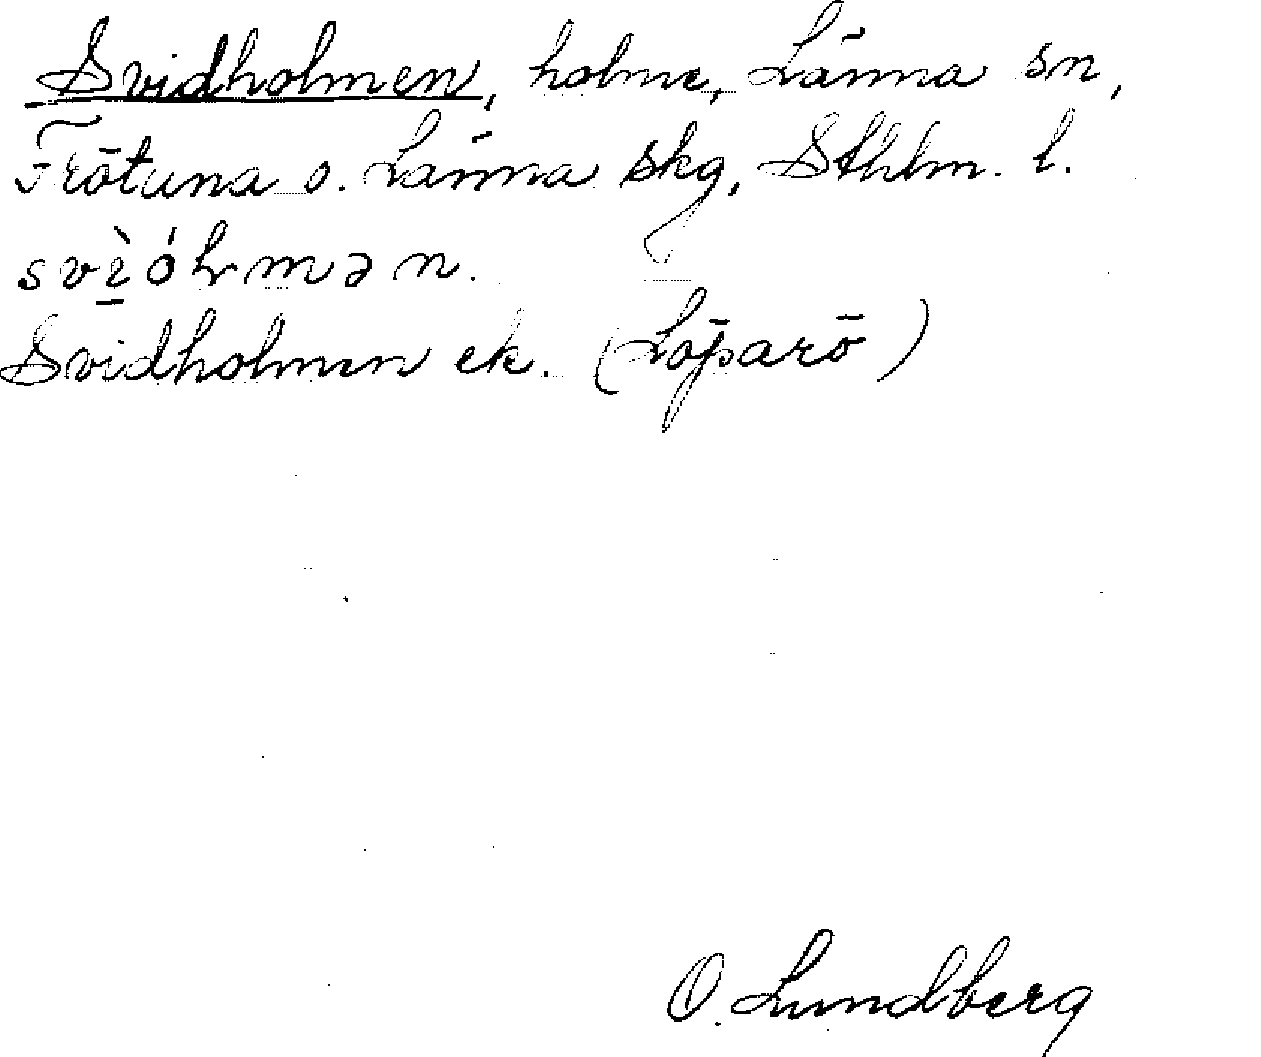 Svidholmen, holme, Länna sn,
Frötuna o. Länna skg, Sthlm. l.
svìóhmən.
Svidholmen ek. (Löparö)
O. Lundberg